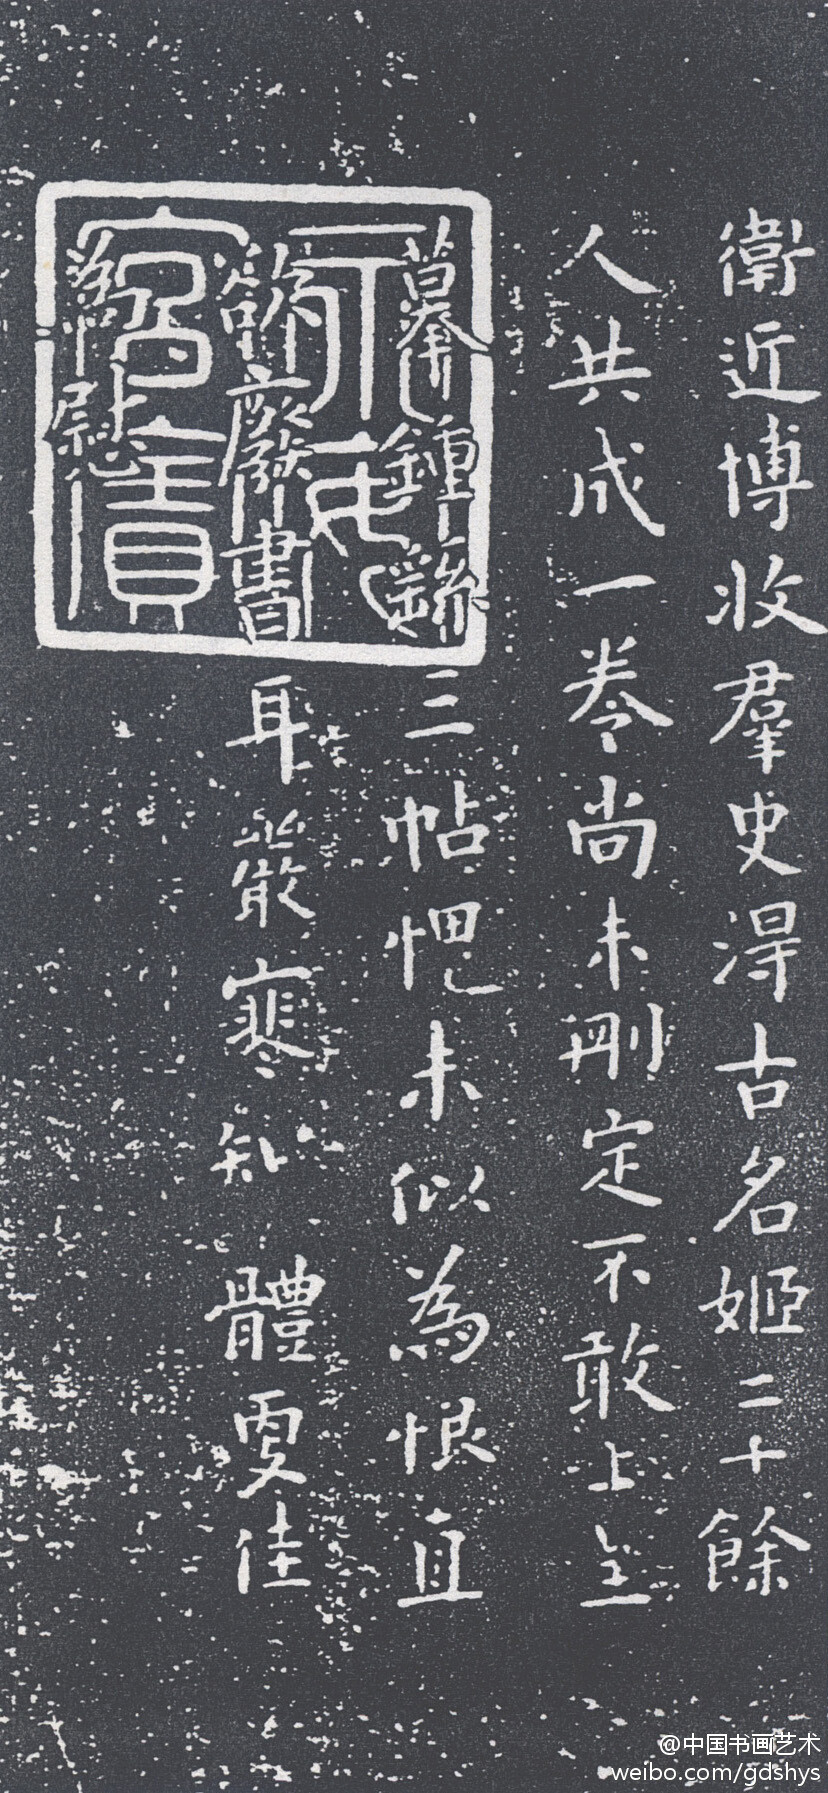 衛近博收羣史得古名姬二十餘
人共成一卷尚未刪定不敢上呈
摹鍾繇三帖未似為恨直
欲廢書耳嚴寒知體佳
為慰
@中国书画艺术
weibo.com/gdshys